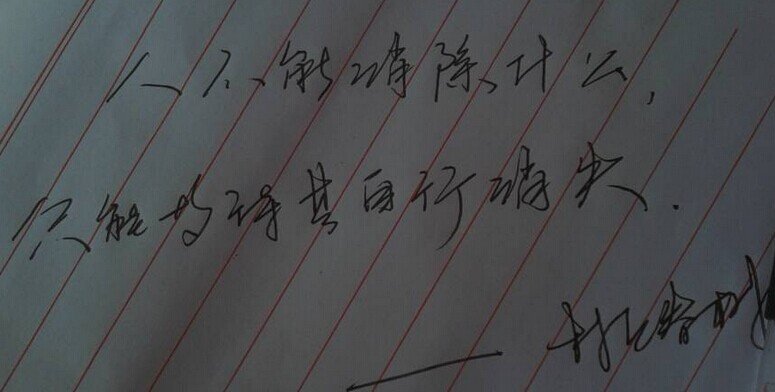 人不能消除什么,
只能等待其自行消失.
——村上春树